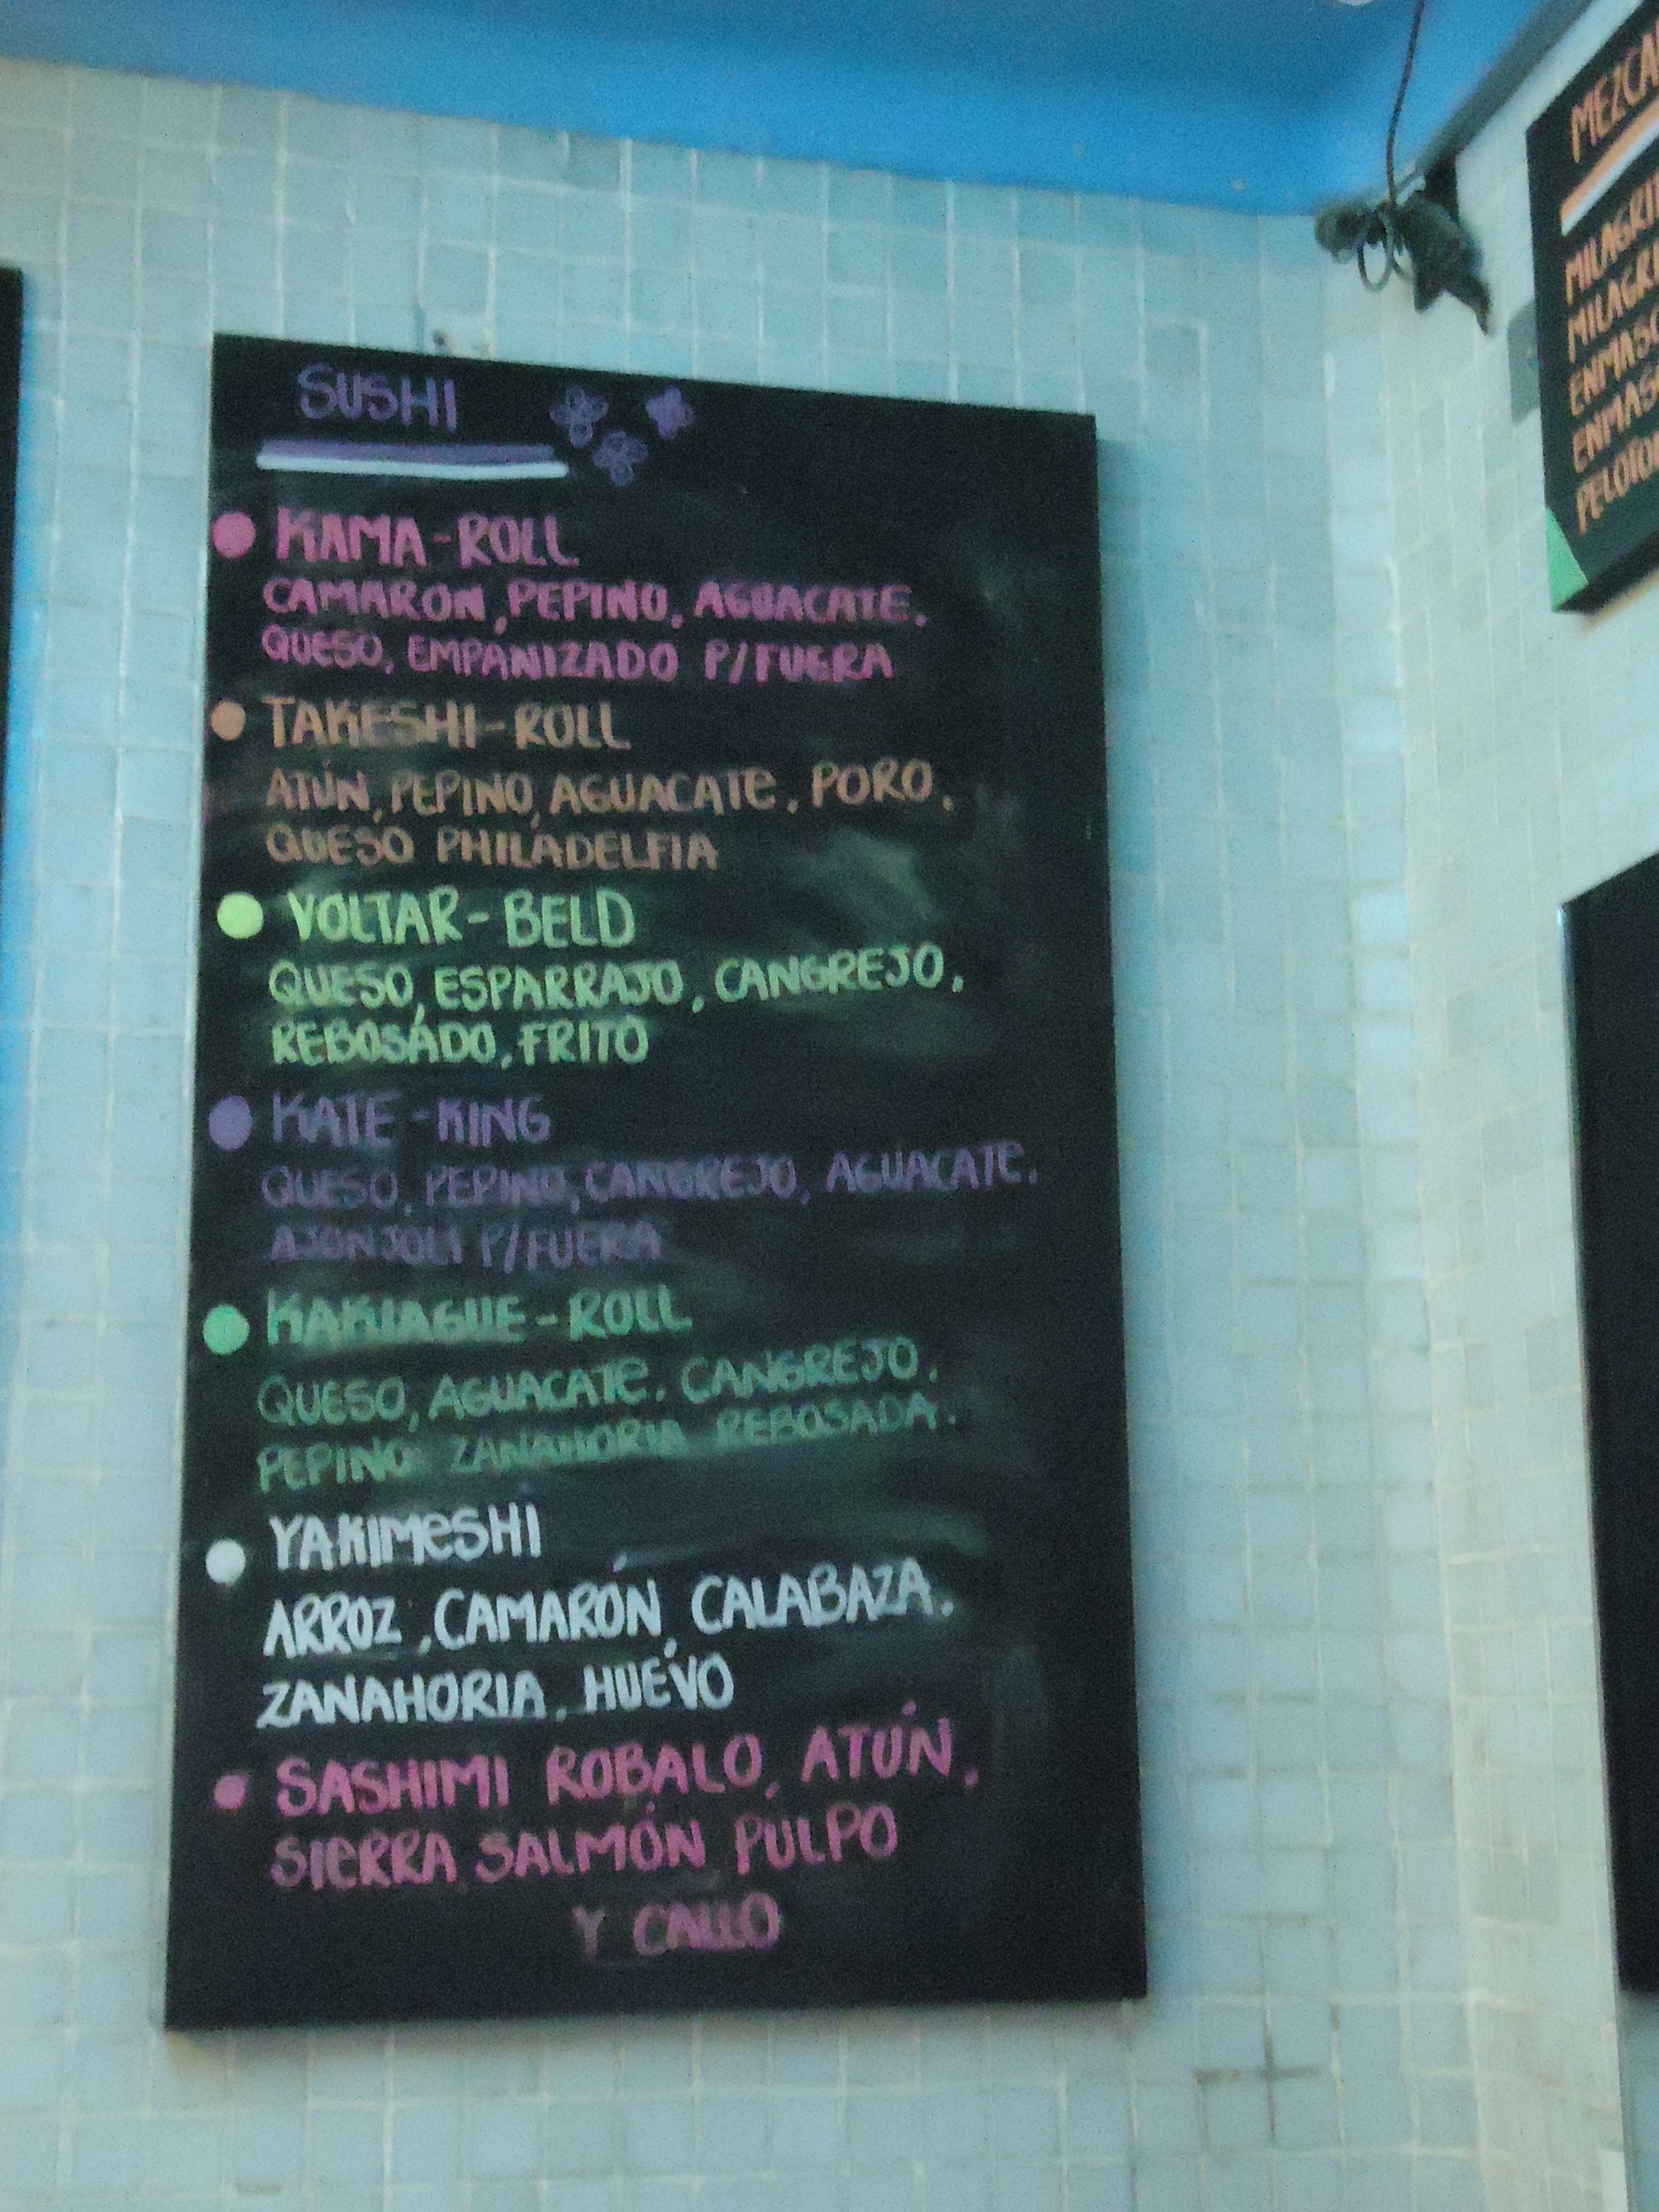 SUSHI
KAMA-ROLL
CAMARON, PEPINO, AGUACATE.
QUESO, EMPANIZADO P/FUERA
TAKESHI-ROLL
ATÚN, PEPINO, AGUACATE, PORO,
QUESO PHILADELFIA
VOLTAR-BELD
QUESO, ESPARRAJO, CANGREJO,
REBOSADO, FRITO
KATE-KING
QUESO, PEPINO, CANGREJO, AGUACATE.
AJONJOLÍ P/FUERA
KAKIAGUE-ROLL
QUESO, AGUACATE. CANGREJO.
PEPINO, ZANAHORIA REBOSADA.
YAKIMESHI
ARROZ, CAMARÓN, CALABAZA,
ZANAHORIA, HUEVO
SASHIMI ROBALO, ATÚN,
SIERRA, SALMÓN, PULPO
Y CALLO
MEZCA
MILAGRI
MILAGRI
ENMASC
ENMAS
PELOTO